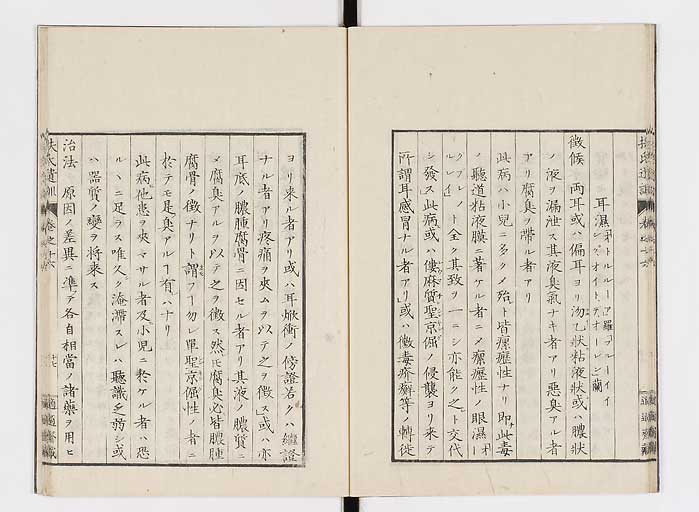 耳漏
徴候 両耳或ハ偏耳ヨリ沕乙状粘液状或ハ膿状
ノ液ヲ漏泄ス其液臭氣ナキ者アリ悪臭アル者
アリ腐臭ヲ帯ル者アリ
此病ハ小児ニ多クノ殆ト皆瘰癧性ナリ即此毒
ノ聴道粘液膜ニ著ケル者ニノ瘰癧性ノ眼濕
ト全ク其致ヲ一ニシ亦能ク之ト交代
シ發ス此病或ハ僂麻質聖京倔ノ侵襲ヨリ来テ
所謂耳感冒ナル者アリ或ハ黴毒疥癬等ノ轉徙
ヨリ来ル者アリ或ハ耳焮衝ノ傍證若クハ繼證
ナル者アリ疼痛ヲ夾ムヲ以テ之ヲ徴ス或ハ亦
耳底ノ膿腫腐骨ニ因セル者アリ其液ノ膿質ニ
ノ腐臭アルヲ以テ之ヲ徴ス然氏腐臭必皆膿腫
腐骨ノ徴ナリト謂フ勿レ單聖京倔性ノ者ニ
於テモ是臭アルヿ有ハナリ
此病他患ヲ夾マサル者及小児ニ於ケル者ハ恐
ルヽニ足ラス唯久ク淹滞スレハ聴識乏弱シ或
ハ器質ノ變ヲ将来ス
治法 原因ノ差異ニ準テ各自相當ノ諸藥ヲ用ヒ
扶氏遺訓
巻之十六